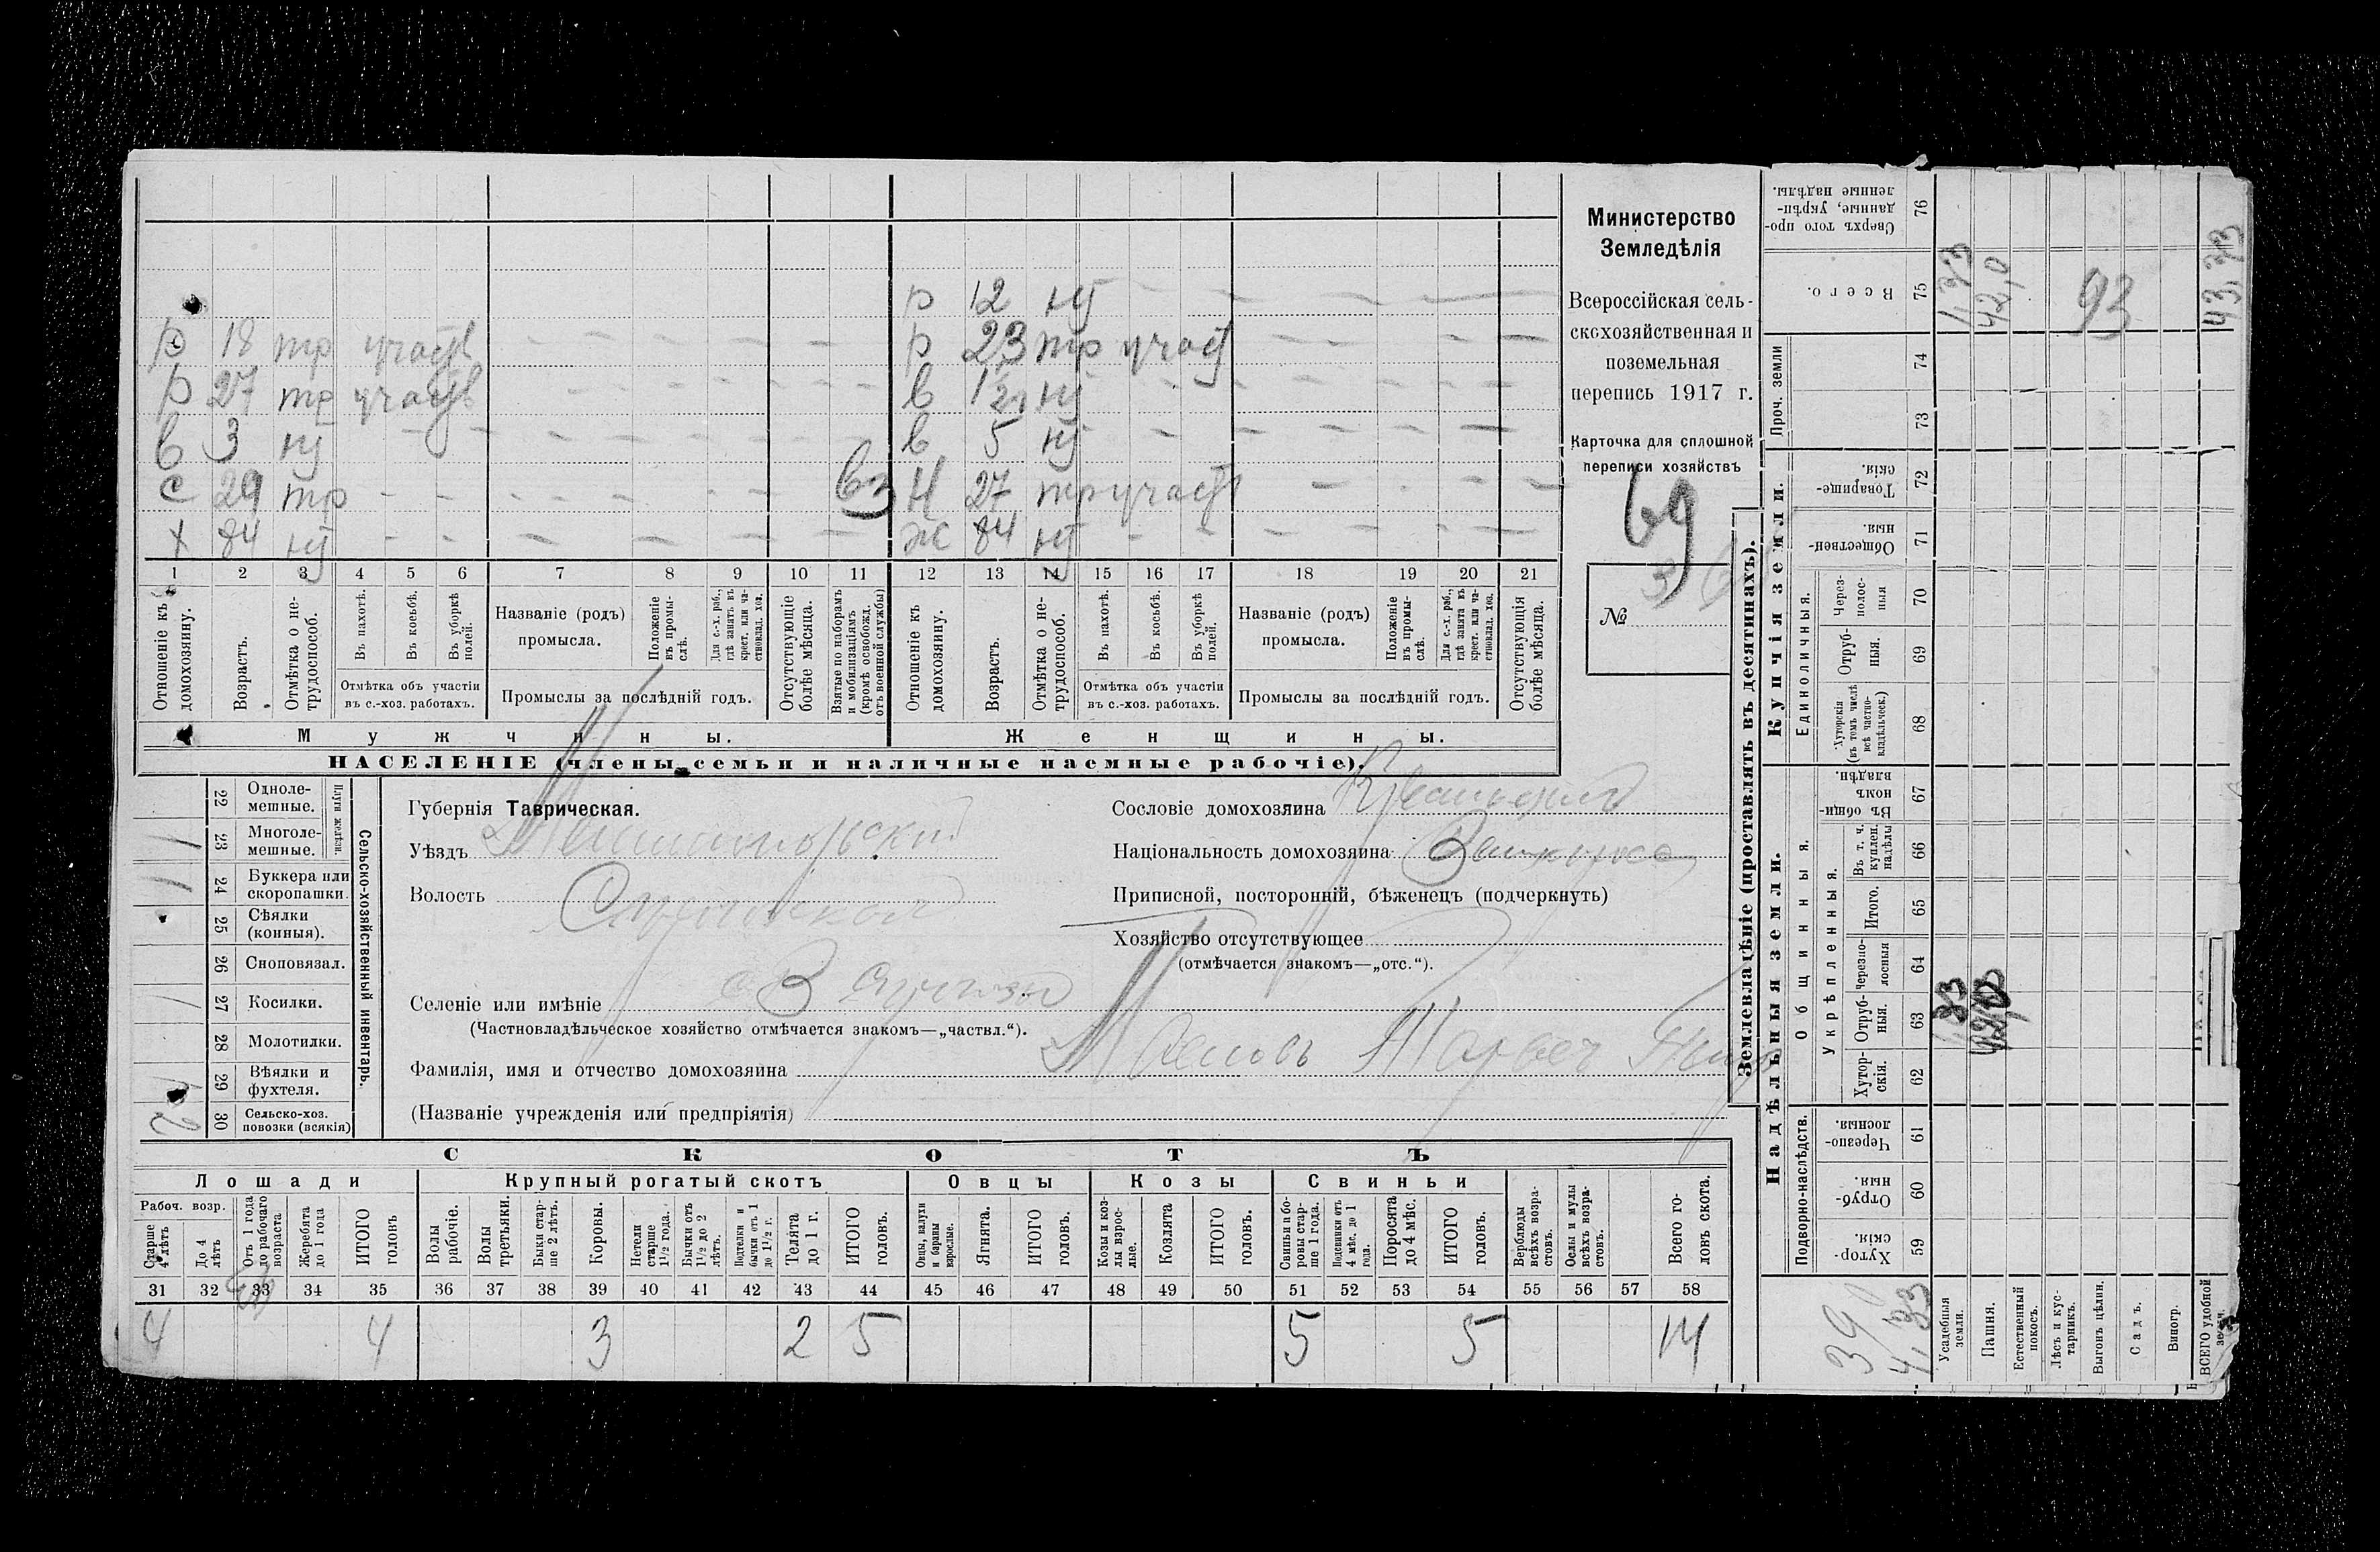 Министерство
Земледѣлія
Всероссійская сель-
скохозяйственная и
поземельная
перепись 1917 г.
Карточка для сплошной
переписи хозяйствъ
69
№
р 12 нт
р 18 тр участв р 23 тр участ
р 27 тр участв в 1 1/2 нт
в 3 нт в 5 нт
с 29 тр вз Н 27 тр участ
х 84 нт ж 84 нт
1 2 3 4 5 6 7 8 9 10 11 12 13 14 15 16 17 18 19 20 21
Отношеніе къ домохозяину.
Возрастъ.
Отмѣтка о не-трудоспособ.
Въ пахотѣ.
Въ косьбѣ.
Въ уборкѣ полей.
Отмѣтка объ участіи
въ с.-хоз. работахъ.
Названіе (родъ)
промысла.
Положеніе въ промы-слѣ.
Для с.-х. раб., гдѣ занятъ въ крест. или ча-стновлад. хоз.
Промыслы за послѣдній годъ.
Отсутствующіе болѣе мѣсяца.
Взятые по наборамъ и мобилизаціямъ (кромѣ освобожд. отъ военной службы)
Отношеніе къ домохозяину.
Возрастъ.
Отмѣтка о не-трудоспособ.
Въ пахотѣ.
Въ косьбѣ.
Въ уборкѣ полей.
Отмѣтка объ участіи
въ с.-хоз. работахъ.
Названіе (родъ)
промысла.
Положеніе въ промы-слѣ.
Для с.-х. раб., гдѣ занята въ крест. или ча-стновлад. хоз.
Промыслы за послѣдній годъ.
Отсутствующія болѣе мѣсяца.
Мужчины. Женщины.
НАСЕЛЕНІЕ (члены семьи и наличные наемные рабочіе).
22 Одноле-мешные.
23 Многоле-мешные. 1
Плуги желѣзн.
24 Буккера или скоропашки. 1
25 Сѣялки (конныя).
26 Сноповязал.
27 Косилки. 1
28 Молотилки.
29 Вѣялки и фухтеля.
30 Сельско-хоз. повозки (всякія) 2
Сельско-хозяйственный инвентарь.
Губернія Таврическая.
Уѣздъ Мелитопольский
Волость
Селеніе или имѣніе
(Частновладѣльческое хозяйство отмѣчается знакомъ—„частвл.“).
Фамилія, имя и отчество домохозяина
(Названіе учрежденія или предпріятія)
Сословіе домохозяина
Національность домохозяина
Приписной, посторонній, бѣженецъ (подчеркнуть)
Хозяйство отсутствующее
(отмѣчается знакомъ—„отс.“).
СКОТЪ
Лошади Крупный рогатый скотъ Овцы Козы Свиньи
Рабоч. возр.
Старше 4 лѣтъ
До 4 лѣтъ
Отъ 1 года до рабочаго возраста
Жеребята до 1 года
ИТОГО головъ
Волы рабочіе.
Волы третьяки.
Быки стар-ше 2 лѣтъ.
Коровы.
Нетели старше 1½ года.
Бычки отъ 1½ до 2 лѣтъ.
Подтелки и бычки отъ 1 до 1½ г.
Телята до 1 г.
ИТОГО головъ.
Овцы, валухи и бараны взрослые.
Ягнята.
ИТОГО головъ.
Козы и коз-лы взрос-лые.
Козлята
ИТОГО головъ.
Свиньи и бо-ровы стар-ше 1 года.
Подсвинки отъ 4 мѣс. до 1 года.
Поросята до 4 мѣс.
ИТОГО головъ.
Верблюды всѣхъ возра-стовъ.
Ослы и мулы всѣхъ возра-стовъ.
Всего го-ловъ скота.
31 32 33 34 35 36 37 38 39 40 41 42 43 44 45 46 47 48 49 50 51 52 53 54 55 56 57 58
4 4 3 2 5 5 5 14
Землевладѣніе (проставлять въ десятинахъ).
Купчія земли.
Надѣльныя земли.
Сверхъ того про-данные, укрѣп-ленные надѣлы. 76
Всего. 75 1,33 42,0 93 43,33
Проч. земли 74 73
Товарище-скія. 72
Обществен-ныя. 71
Единоличныя.
Через-полос-ныя 70
Отруб-ныя. 69
Хуторскія (въ томъ числѣ всѣ частно-владѣльческ.) 68
Общинныя.
Въ общи-номъ владѣн. 67
Укрѣпленныя.
Въ т. ч. куплен. надѣлы 66
Итого. 65
Черезпо-лосныя 64
Отруб-ныя. 63
Хутор-скія. 62
Подворно-наслѣдств.
Черезпо-лосныя. 61
Отруб-ныя. 60
Хутор-скія. 59
Усадебныя земли.
Пашня.
Естественный покосъ.
Лѣсъ и кус-тарникъ.
Выгонъ цѣлин.
Садъ.
Виногр.
ВСЕГО удобной